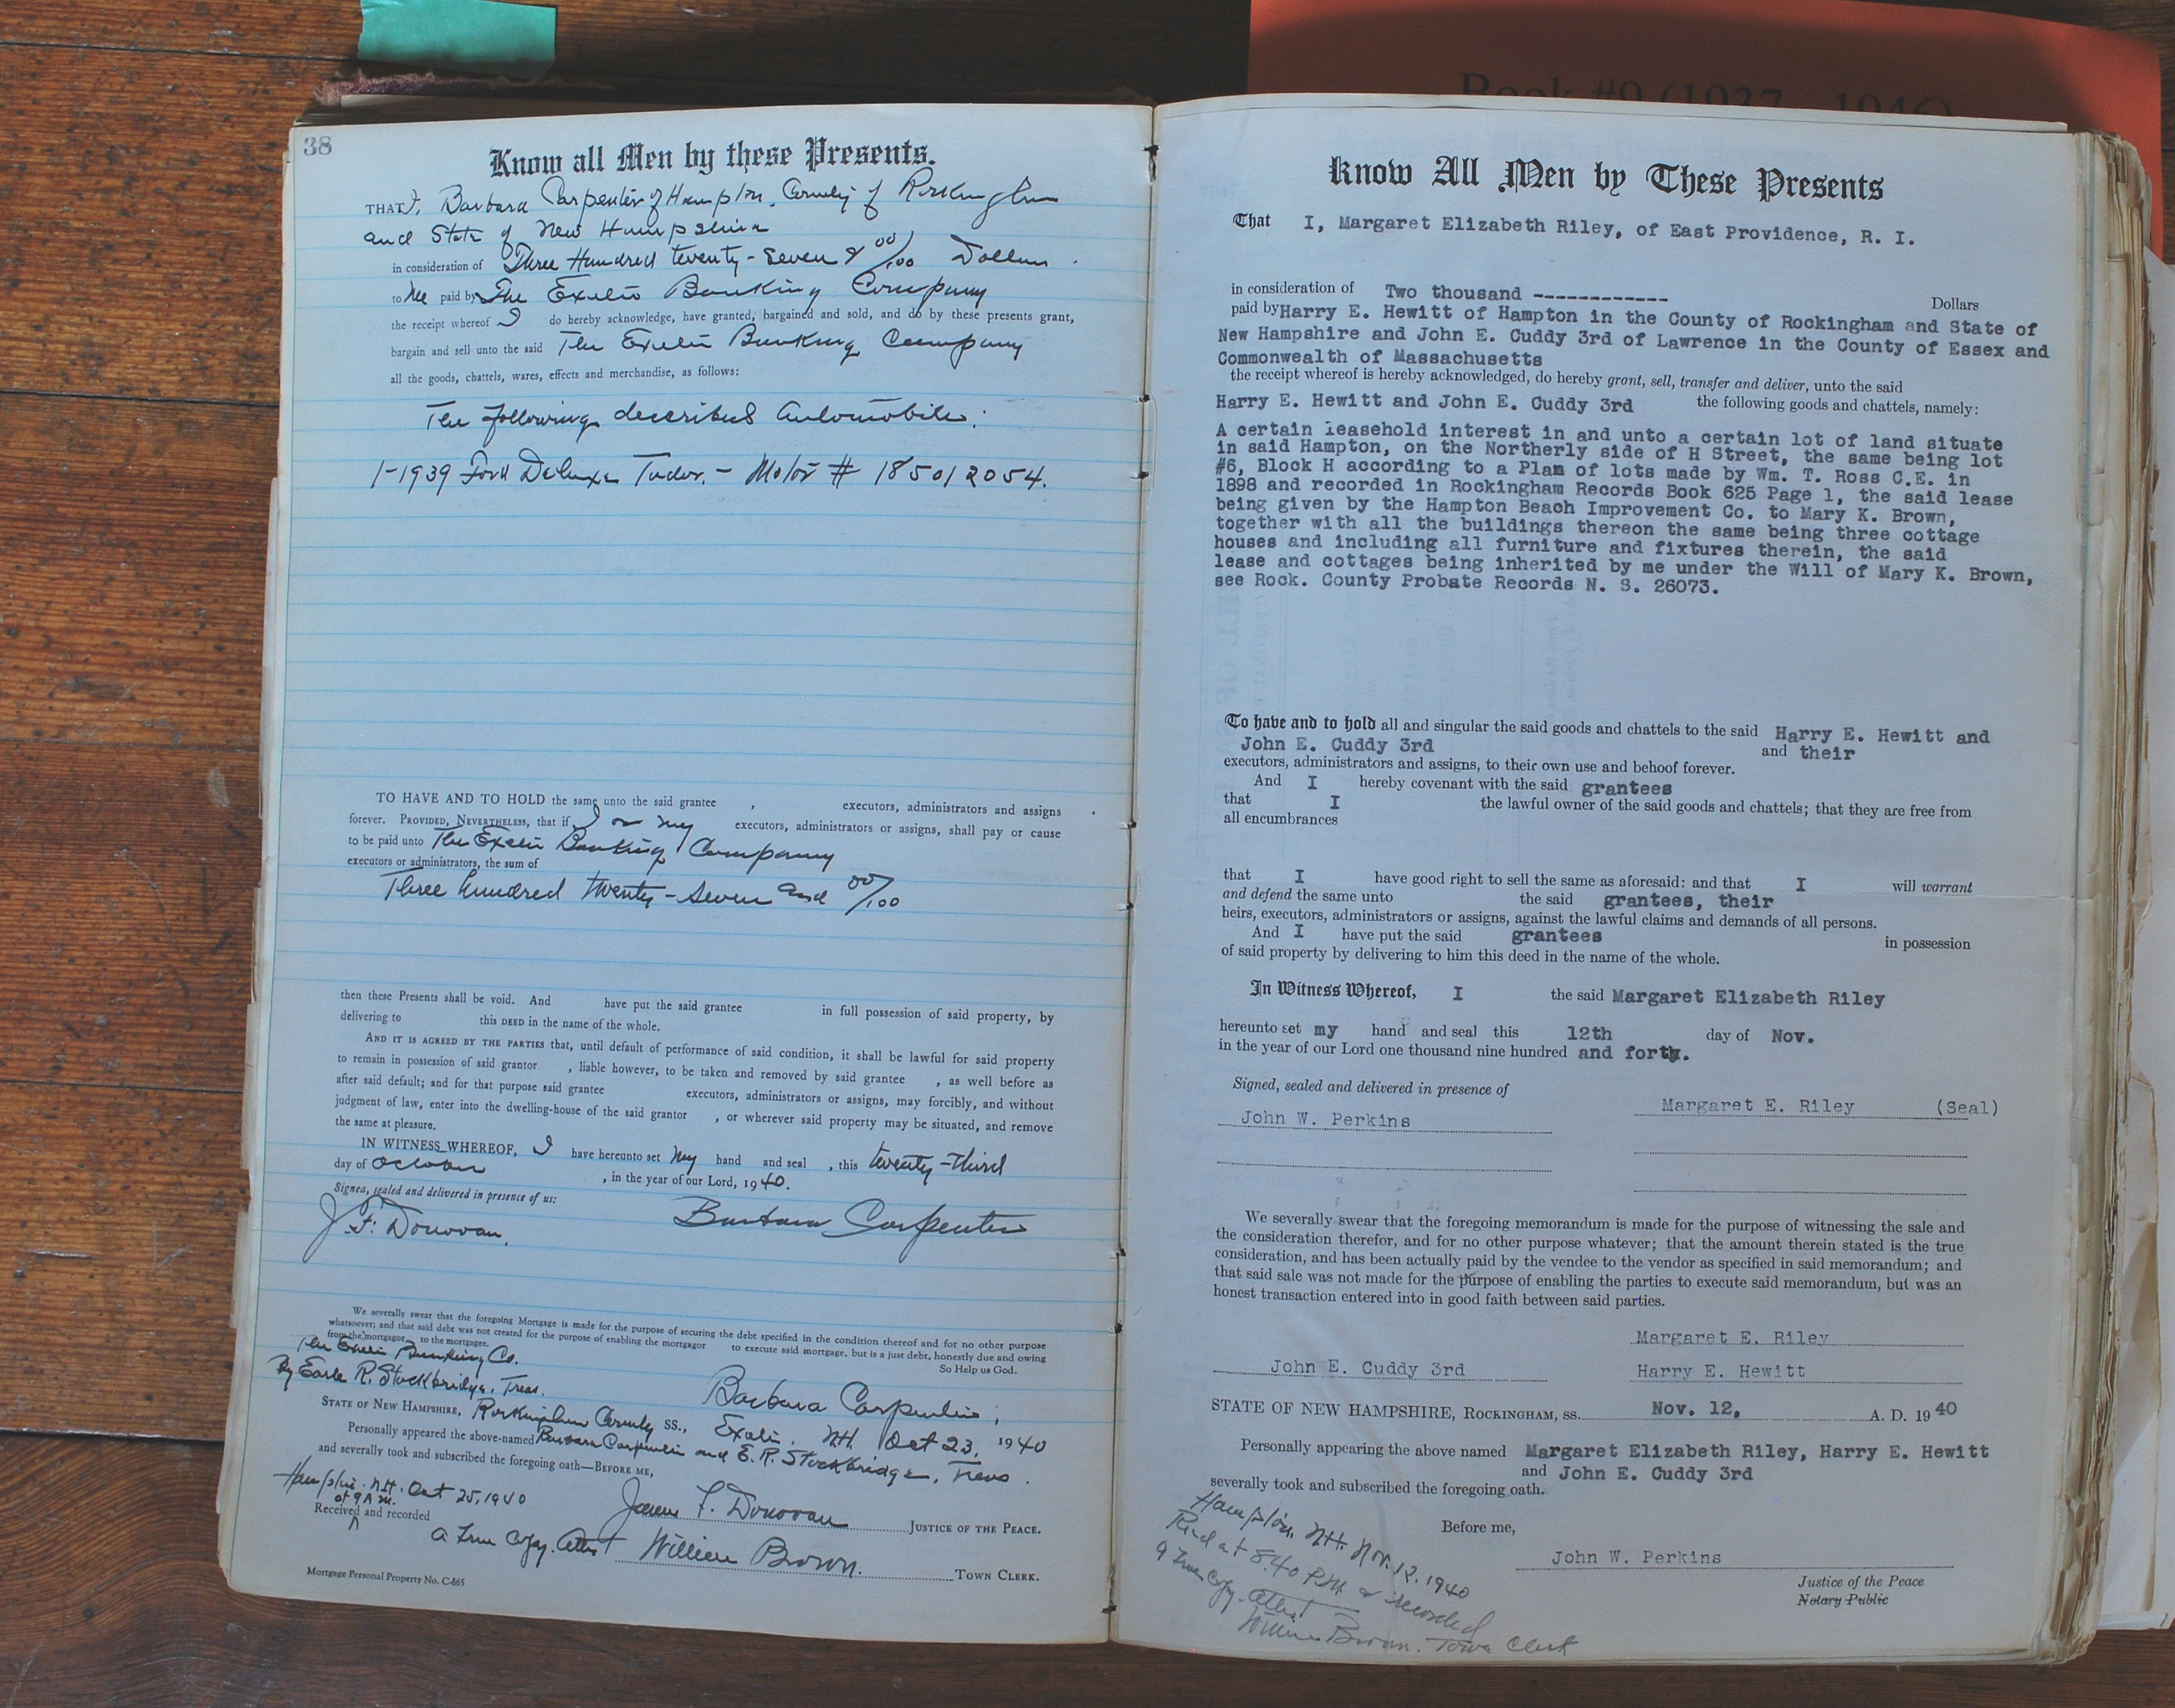 Book #9 (1937 - 1946)
38
Know all Men by these Presents.
THAT I, Barbara Carpenter of Hampton, County of Rockingham
and State of New Hampshire
in consideration of Three Hundred twenty-seven & 00/100 Dollars
to me paid by The Exeter Banking Company
the receipt whereof I do hereby acknowledge, have granted, bargained and sold, and do by these presents grant,
bargain and sell unto the said The Exeter Banking Company
all the goods, chattels, wares, effects and merchandise, as follows:
The following described automobile:
1-1939 Ford Deluxe Tudor. - Motor # 185012054.
TO HAVE AND TO HOLD the same unto the said grantee , executors, administrators and assigns
forever. PROVIDED, NEVERTHELESS, that if I or my executors, administrators or assigns, shall pay or cause
to be paid unto The Exeter Banking Company
executors or administrators, the sum of
Three hundred twenty-seven and 00/100
then these Presents shall be void. And have put the said grantee in full possession of said property, by
delivering to this DEED in the name of the whole.
AND IT IS AGREED BY THE PARTIES that, until default of performance of said condition, it shall be lawful for said property
to remain in possession of said grantor , liable however, to be taken and removed by said grantee , as well before as
after said default; and for that purpose said grantee executors, administrators or assigns, may forcibly, and without
judgment of law, enter into the dwelling-house of the said grantor , or wherever said property may be situated, and remove
the same at pleasure.
IN WITNESS WHEREOF, I have hereunto set my hand and seal , this twenty-third
day of October , in the year of our Lord, 1940.
Signed, sealed and delivered in presence of us:
J. F. Donovan. Barbara Carpenter
We severally swear that the foregoing Mortgage is made for the purpose of securing the debt specified in the condition thereof and for no other purpose
whatsoever; and that said debt was not created for the purpose of enabling the mortgagor to execute said mortgage, but is a just debt, honestly due and owing
from the mortgagor to the mortgagee. So Help us God.
The Exeter Banking Co.
By Earle R. Stockbridge, Treas. Barbara Carpenter,
STATE OF NEW HAMPSHIRE, Rockingham County SS., Exeter. N.H. Oct 23, 1940
Personally appeared the above-named Barbara Carpenter and E. R. Stockbridge, Treas.
and severally took and subscribed the foregoing oath—BEFORE ME,
Hampton. N.H. Oct 25, 1940
at 9 A.M.
Received and recorded James F. Donovan JUSTICE OF THE PEACE.
A True Copy. Attest William Brown. TOWN CLERK.
Mortgage Personal Property No. C-865
Know All Men by These Presents
That I, Margaret Elizabeth Riley, of East Providence, R. I.
in consideration of Two thousand ------------ Dollars
paid by Harry E. Hewitt of Hampton in the County of Rockingham and State of
New Hampshire and John E. Cuddy 3rd of Lawrence in the County of Essex and
Commonwealth of Massachusetts
the receipt whereof is hereby acknowledged, do hereby grant, sell, transfer and deliver, unto the said
Harry E. Hewitt and John E. Cuddy 3rd the following goods and chattels, namely:
A certain leasehold interest in and unto a certain lot of land situate
in said Hampton, on the Northerly side of H Street, the same being lot
#6, Block H according to a Plan of lots made by Wm. T. Ross C.E. in
1898 and recorded in Rockingham Records Book 625 Page 1, the said lease
being given by the Hampton Beach Improvement Co. to Mary K. Brown,
together with all the buildings thereon the same being three cottage
houses and including all furniture and fixtures therein, the said
lease and cottages being inherited by me under the Will of Mary K. Brown,
see Rock. County Probate Records N. S. 26073.
To have and to hold all and singular the said goods and chattels to the said Harry E. Hewitt and
John E. Cuddy 3rd and their
executors, administrators and assigns, to their own use and behoof forever.
And I hereby covenant with the said grantees
that I the lawful owner of the said goods and chattels; that they are free from
all encumbrances
that I have good right to sell the same as aforesaid: and that I will warrant
and defend the same unto the said grantees, their
heirs, executors, administrators or assigns, against the lawful claims and demands of all persons.
And I have put the said grantees in possession
of said property by delivering to him this deed in the name of the whole.
In Witness Whereof, I the said Margaret Elizabeth Riley
hereunto set my hand and seal this 12th day of Nov.
in the year of our Lord one thousand nine hundred and forty.
Signed, sealed and delivered in presence of
Margaret E. Riley (Seal)
John W. Perkins
We severally swear that the foregoing memorandum is made for the purpose of witnessing the sale and
the consideration therefor, and for no other purpose whatever; that the amount therein stated is the true
consideration, and has been actually paid by the vendee to the vendor as specified in said memorandum; and
that said sale was not made for the purpose of enabling the parties to execute said memorandum, but was an
honest transaction entered into in good faith between said parties.
Margaret E. Riley
John E. Cuddy 3rd Harry E. Hewitt
STATE OF NEW HAMPSHIRE, ROCKINGHAM, SS. Nov. 12, A. D. 1940
Personally appearing the above named Margaret Elizabeth Riley, Harry E. Hewitt
and John E. Cuddy 3rd
severally took and subscribed the foregoing oath.
Before me,
Hampton, N.H. Nov. 12. 1940
Recd at 8:40 P.M. & recorded
A True Copy. Attest
William Brown. Town Clerk
John W. Perkins
Justice of the Peace
Notary Public